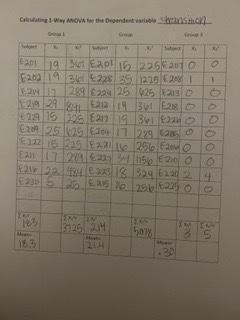 Calculating 1-Way ANOVA for the Dependent variable
Group 1 Group Group 3
Subject X₁ X₁² Subject X₂ X₂² Subject X₃ X₃²
E201 19 361 E203 15 225 E207 0 0
E202 19 361 E228 35 1225 E208 1 1
E204 17 289 25 625 E213 0 0
29 841 E212 19 361 0 0
15 225 E213 19 361 0 0
E209 25 625 17 289 0 0
E222 15 225 E221 16 256 0 0
E211 17 289 E227 34 1156 E210 0 0
E216 22 484 E223 18 324 E220 2 4
E230 5 25 E215 16 256 E225 0 0
183 3725 214 5078 3 5
Mean= Mean= Mean=
18.3 21.4 .30